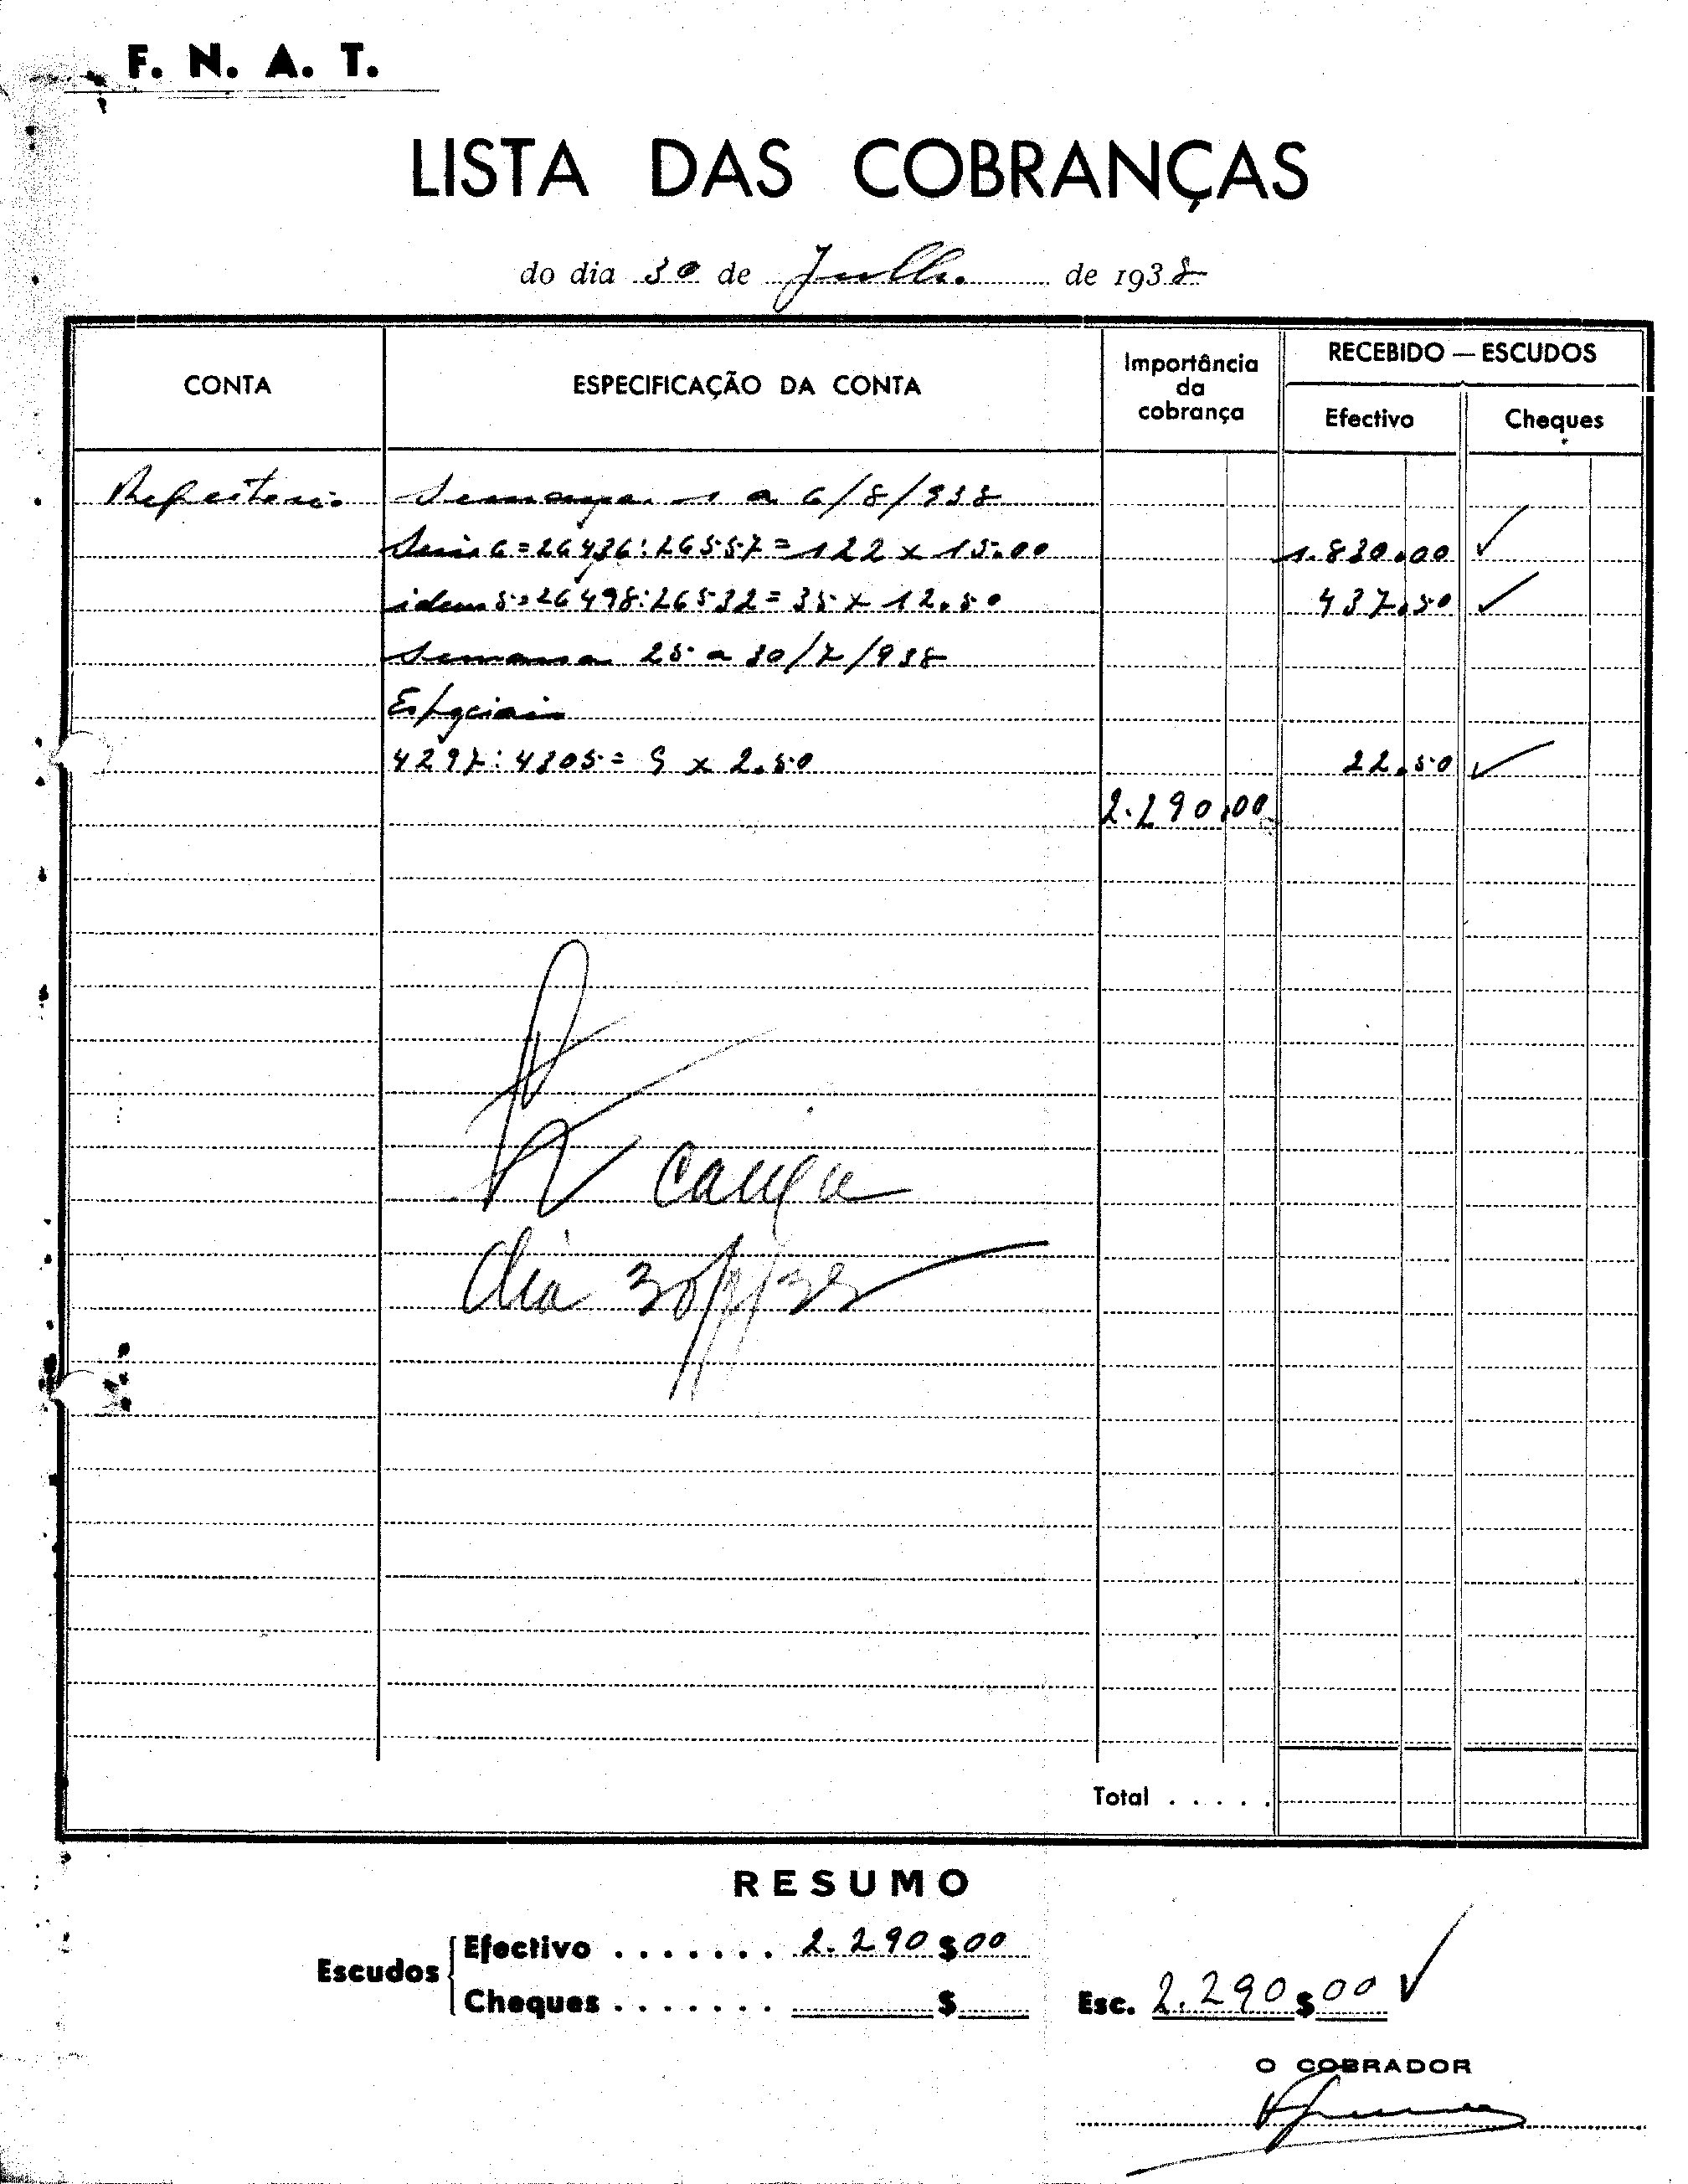 F. N. A. T.
LISTA DAS COBRANÇAS
do dia 30 de Julho de 1938
CONTA
ESPECIFICAÇÃO DA CONTA
Importância
da
cobrança
RECEBIDO — ESCUDOS
Efectivo
Cheques
Refeitorio Semana 1 a 6/8/938
Serie 6=26436:26557=122 x 15.00 1.830.00
idem 5=26498:26532=35 x 12.50 437.50
Semana 25 a 30/7/938
Especiais
4297:4305= 9 x 2.50 22.50
2.290.00
dia 30/7/38
Total . . . . .
RESUMO
Escudos
Efectivo . . . . . . . 2.290$00
Cheques . . . . . . . $
Esc. 2.290$00
O COBRADOR